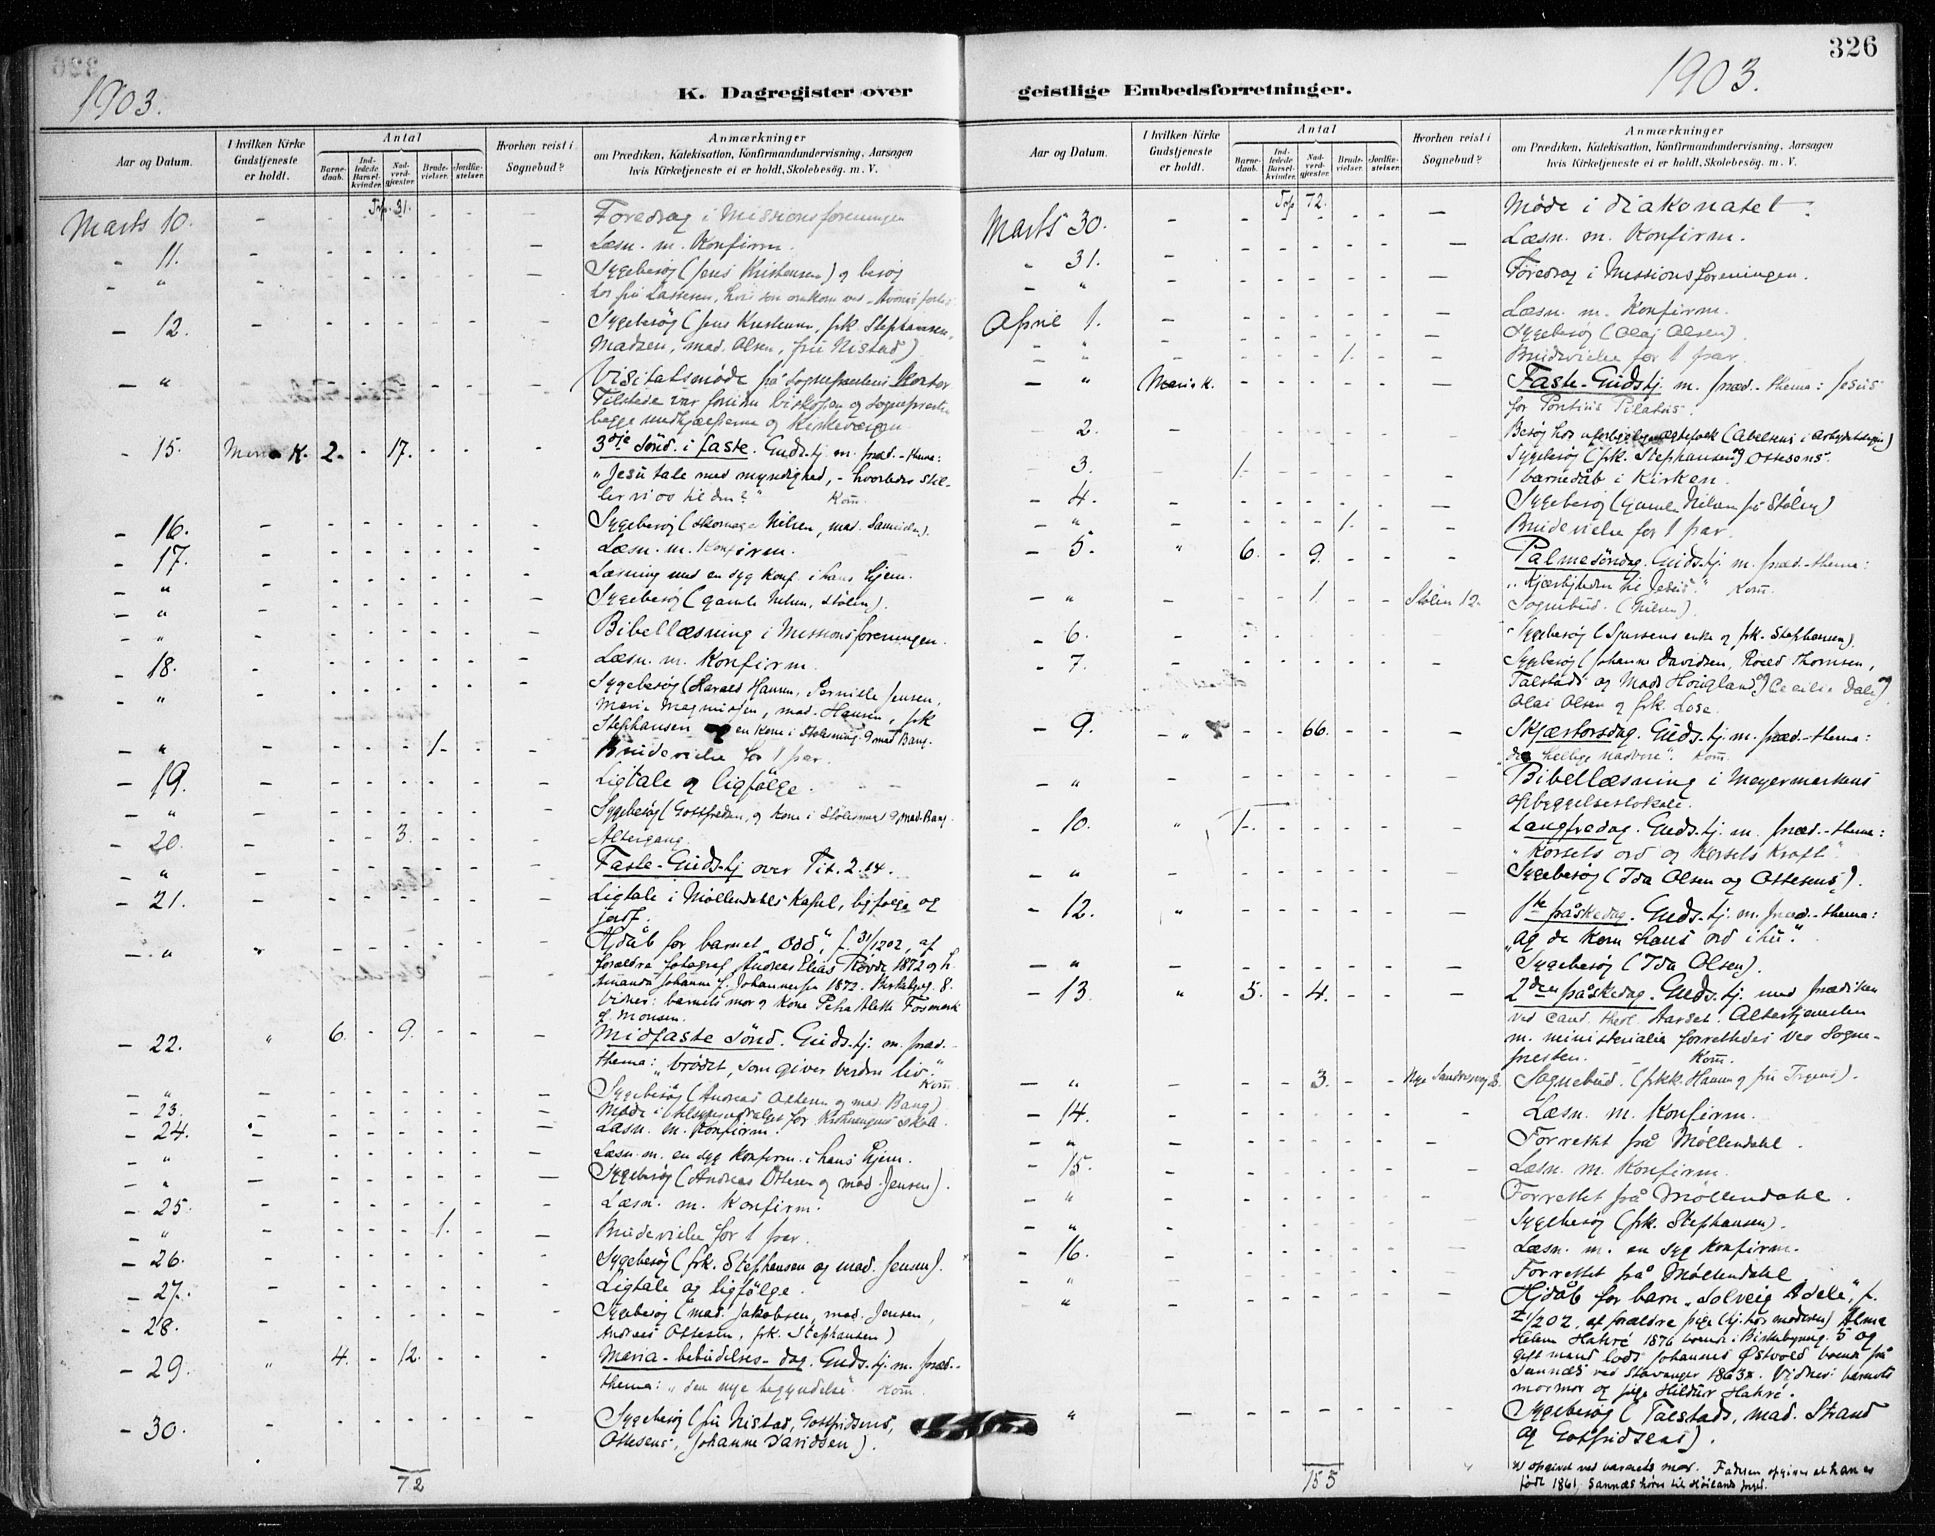 326
1903.
1903.
K. Dagregister over
geistlige Embedsforretninger.
Aar og Datum.
I hvilken Kirke Gudstjeneste er holdt.
Antal
Barnedaab.
Indledede Barselkvinder.
Nadverdgjæster.
Brudevielser.
Jordfæstelser.
Hvorhen reist i Sognebud?
Anmærkninger
om Prædiken, Katekisation, Konfirmandundervisning, Aarsagen
hvis Kirketjeneste ei er holdt, Skolebesög. m. V.
Trp. 31.
Marts 10. Foredrag i Missionsforeningen
- 11. Læsn. m. Konfirm.
- " Sygebesøg (Jens Kristensen) og besøg
hos fru Lassesen,
- 12. Sygebesøg (Jens Kristensen, frk Stephansen,
Madsen, mad. Olsen, fru Nistad)
- " Visitatsmøde på sognepræstens Kontor
Tilstede var foruden biskopen og sognepræsten
begge medhjælperne og Kirkeværgen
- 15. Maria K. 2. - 17. 3dje sönd. i faste. Guds.tj. m. præd. - thema:
"Jesu tale med myndighed, - hvorledes stil-
ler vi os til den?" Kom.
- 16. Sygebesøg (skomager Nilsen, mad. Samuelsen).
- 17. Læsn. m. Konfirm.
- " Læsning med en syg konf. i hans hjem.
- " Sygebesøg (gamle Nilsen, Stølen).
- " Bibellæsning i Missionsforeningen.
- 18. Læsn. m. Konfirm.
- " Sygebesøg (Harald Hansen, Pernille Jensen,
Marie Magnussen, mad. Hansen, frk
Stephansen og en Kone i Stølesmug. og mad Bang.
- " 1. Brudevielse for 1 par.
- 19. Ligtale og ligfölge.
- " Sygebesøg (Gottfredsen, og kone i Stølesmug og mad. Bang.
- 20. 3. Altergang.
- " Faste-Guds.tj over Tit. 2.14.
- 21. Ligtale i Møllendahls kapel, ligfølge og
jordf.
- " Hjdåb for barnet "Odd", f. 31/1 202, af
forældre fotograf Andreas Elias Røvde 1872 og h.
Amanda Johanne f. Johannesen 1872. Birkebgt. 8.
Vidner: barnets mor og kone Petra Alette Fosmark
f. Monsen.
- 22. " 6. - 9. Midfaste sönd. Guds.tj. m. præd. -
thema: "brødet, som giver verden liv." Kom.
- " Sygebesøg (Andreas Ottesen og mad. Bang)
- 23. Møde i for Krohnengens skole.
- 24. Læsn. m. Konfirm.
- " Læsn. m. en syg konfirm. i hans hjem.
- " Sygebesøg (Andreas Ottesen og mad. Jensen).
- 25. Læsn. m. Konfirm.
- " 1. Brudevielse for 1 par.
- 26. Sygebesøg (frk. Stephansen og mad. Jensen).
- 27. Ligtale og ligfölge.
- 28. Sygebesøg (mad. Jakobsen, mad. Jensen,
Andreas Ottesen, frk. Stephansen)
- 29. " 4. - 12. Maria-bebudelses-dag. Guds.tj. m. præd. -
thema: "den nye begyndelse" Kom.
- 30. Sygebesøg (fru Nistad, Gottfridsens,
Ottesens, Johanne Davidsen).
72
Aar og Datum.
I hvilken Kirke Gudstjeneste er holdt.
Antal
Barnedaab.
Indledede Barselkvinder.
Nadverdgjæster.
Brudevielser.
Jordfæstelser.
Hvorhen reist i Sognebud?
Anmærkninger
om Prædiken, Katekisation, Konfirmandundervisning, Aarsagen
hvis Kirketjeneste ei er holdt, Skolebesög. m. V.
Trp 72.
Marts 30. Møde i diakonatet.
Læsn. m. Konfirm.
- 31. Foredrag i Missionsforeningen.
April 1. Læsn. m. Konfirm.
Sygebesøg (Olaj Olsen).
- " 1. Brudevielse for 1 par.
- " Maria K. Faste-Guds.tj. m. præd. - thema: Jesus
for Pontius Pilatus.
- 2. Besøg hos uforligte ægtefolk (Abelsens i
- 3. Sygebesøg (frk. Stephansen og Ottesens.
1. 1 barnedåb i Kirken.
- 4. Sygebesøg (gamle Nilsen på Stølen)
- " 1. Brudevielse for 1 par.
- 5. " 6. - 9. Palmesöndag. Guds.tj. m. præd. - thema:
"Kjærligheden til Jesus." Kom.
- " 1 Stølen 12. Sognebud. (Nilsen).
- 6. Sygebesøg (enke og frk. Stephansen).
- 7. Sygebesøg (Johanne Davidsen, Roald Thomsen,
Talstads og Mads Hougland og Cecilie Dale og
Olai Olsen og frk. Lose.
- 9. " 66. Skjærtorsdag. Guds.tj. m. præd. - thema:
"den hellige nadvere". Kom.
- " Bibellæsning i Meyermarkens
opbyggelseslokale.
- 10. " 1. Langfredag. Guds.tj. m. præd. - thema:
"Korsets ord og Korsets Kraft".
- " Sygebesøg (Ida Olsen og Ottesens).
- 12. " 1ste påskedag. Guds.tj. m. præd. - thema:
"og de kom hans ord ihu."
- " Sygebesøg (Ida Olsen).
- 13. " 5. - 4. 2den påskedag. Guds.tj. med prædiken
ved cand. theol. Aarset. Altertjenesten
m. ministerialia forrettedes ved Sogne-
presten. Kom.
- " 3. Nye Sandviksvei 8. Sognebud. (frk. Hansen og fru Irgens).
- 14. Læsn. m. Konfirm.
- " Forrettet på Møllendahl.
- 15. Læsn. m. Konfirm.
- " Forrettet på Møllendahl.
- " Sygebesøg (frk. Stephansen).
- 16. Læsn. m. en syg Konfirm.
- " Forrettet på Møllendahl
- " Hjdåb for barn "Solveig Adele", f.
2/1 202, af forældre pige (hj. hos moderen) Alma
Helene Hatrö 1876 boende i Birkebgt. 5 og
gift mand lods Johannes Østvold boende på
Sannæs ved Stavanger 1863x. Vidner: barnets
mormor og pige Hildur Hatrö.
- " Sygebesøg (Talstads, mad. Strand
og Gotfridsens).
x) opgivet ved barnets mor. Faderen opgiver at han er
født 1861, Sannæs hører til Høilands præg.
155